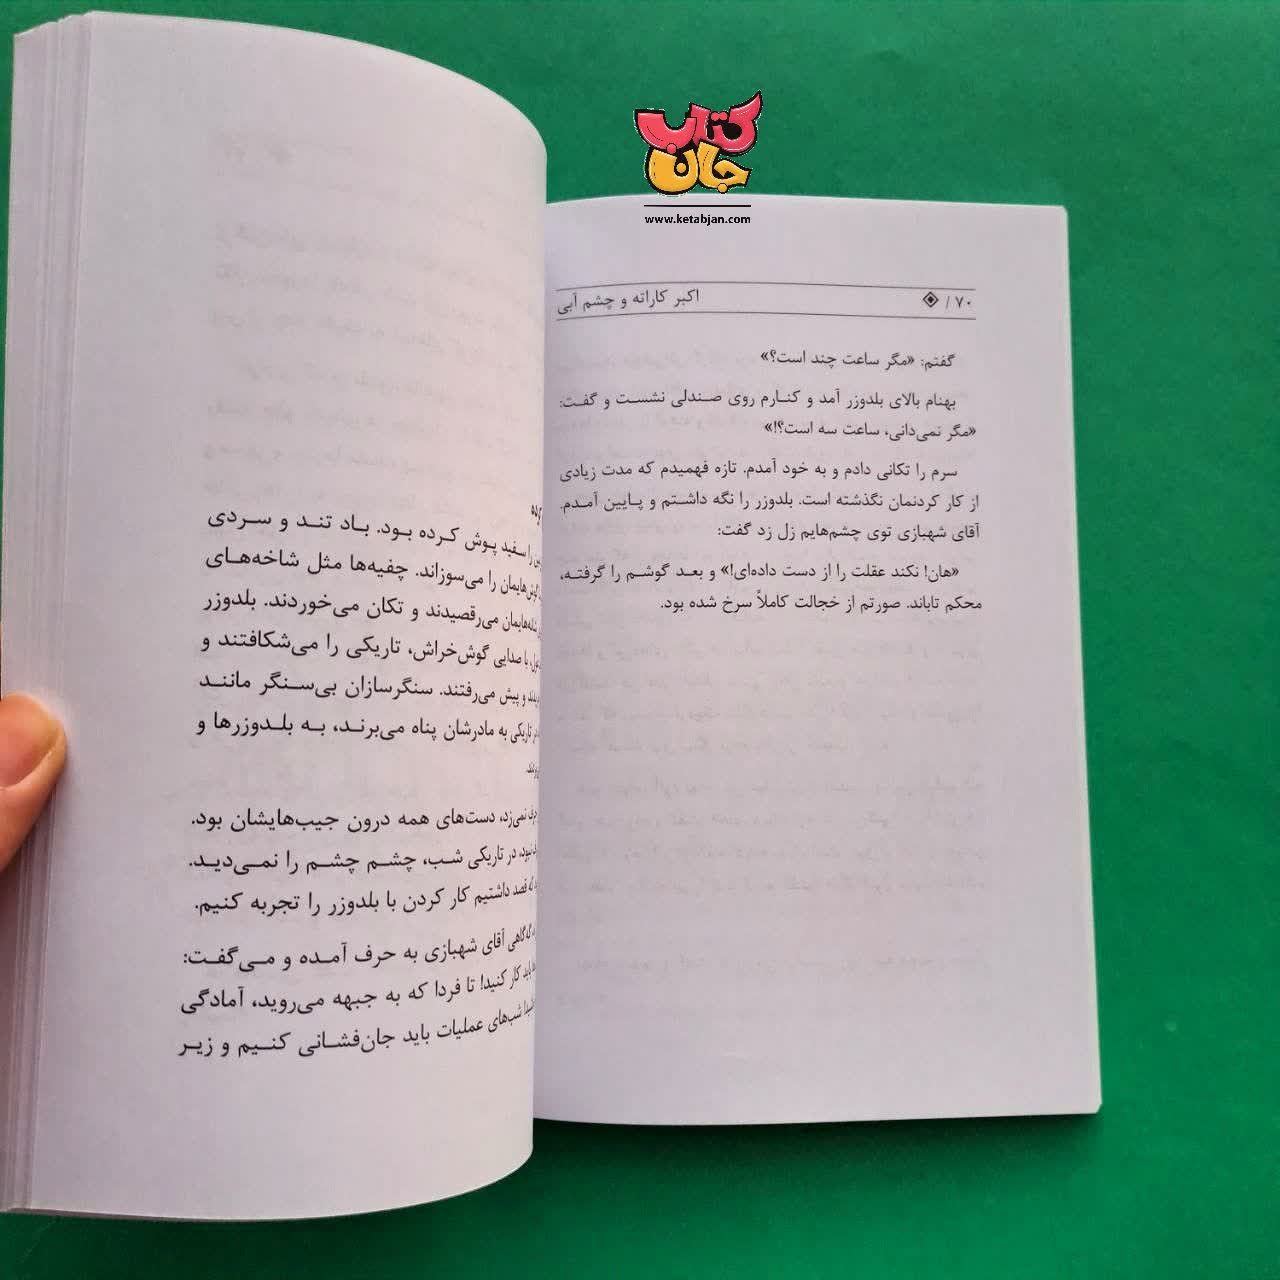 کتاب جان
www.ketabjan.com
۷۰ / اکبر کاراته و چشم آبی
گفتم: «مگر ساعت چند است؟»
بهنام بالای بلدوزر آمد و کنارم روی صندلی نشست و گفت:
«مگر نمی‌دانی، ساعت سه است؟!»
سرم را تکانی دادم و به خود آمدم. تازه فهمیدم که مدت زیادی
از کار کردنمان نگذشته است. بلدوزر را نگه داشتم و پایین آمدم.
آقای شهبازی توی چشم‌هایم زل زد گفت:
«هان! نکند عقلت را از دست داده‌ای!» و بعد گوشم را گرفته،
محکم تاباند. صورتم از خجالت کاملاً سرخ شده بود.
را سفید پوش کرده بود. باد تند و سردی
گوش‌هایمان را می‌سوزاند. چفیه‌ها مثل شاخه‌های
شانه‌هایمان می‌رقصیدند و تکان می‌خوردند. بلدوزر
با صدایی گوش‌خراش، تاریکی را می‌شکافتند و
و پیش می‌رفتند. سنگرسازان بی‌سنگر مانند
در تاریکی به مادرشان پناه می‌برند، به بلدوزرها و
حرف نمی‌زد، دست‌های همه درون جیب‌هایشان بود.
نبود، در تاریکی شب، چشم چشم را نمی‌دید.
که قصد داشتیم کار کردن با بلدوزر را تجربه کنیم.
گه‌گاهی آقای شهبازی به حرف آمده و می‌گفت:
باید کار کنید! تا فردا که به جبهه می‌روید، آمادگی
شب‌های عملیات باید جان‌فشانی کنیم و زیر